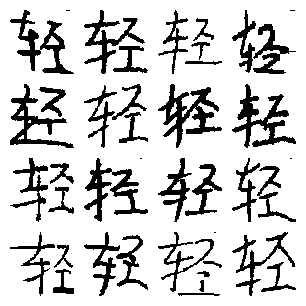 轻轻轻轻
轻轻轻轻
轻轻轻轻
轻轻轻轻